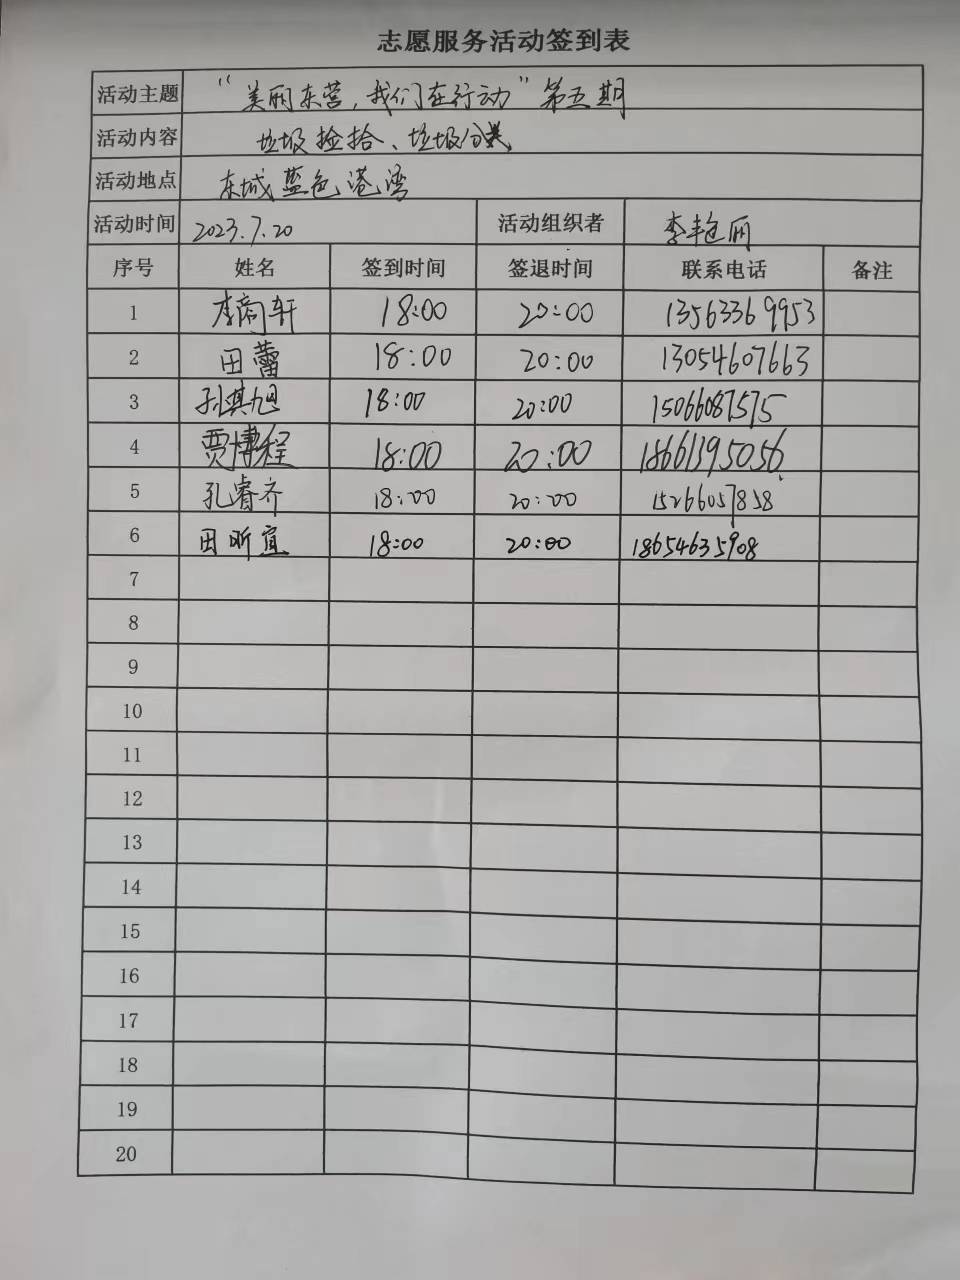 志愿服务活动签到表
活动主题 “美丽东营,我们在行动”第五期
活动内容 垃圾捡拾、垃圾分类
活动地点 东城蓝色港湾
活动时间 2023.7.20 活动组织者 李艳丽
序号 姓名 签到时间 签退时间 联系电话 备注
1 李商轩 18:00 20:00 13563369953
2 田蕾 18:00 20:00 13054607663
3 孙淇旭 18:00 20:00 15066087575
4 贾博程 18:00 20:00 18661395056
5 孔睿齐 18:00 20:00 15266057858
6 田昕宜 18:00 20:00 18654635908
7
8
9
10
11
12
13
14
15
16
17
18
19
20